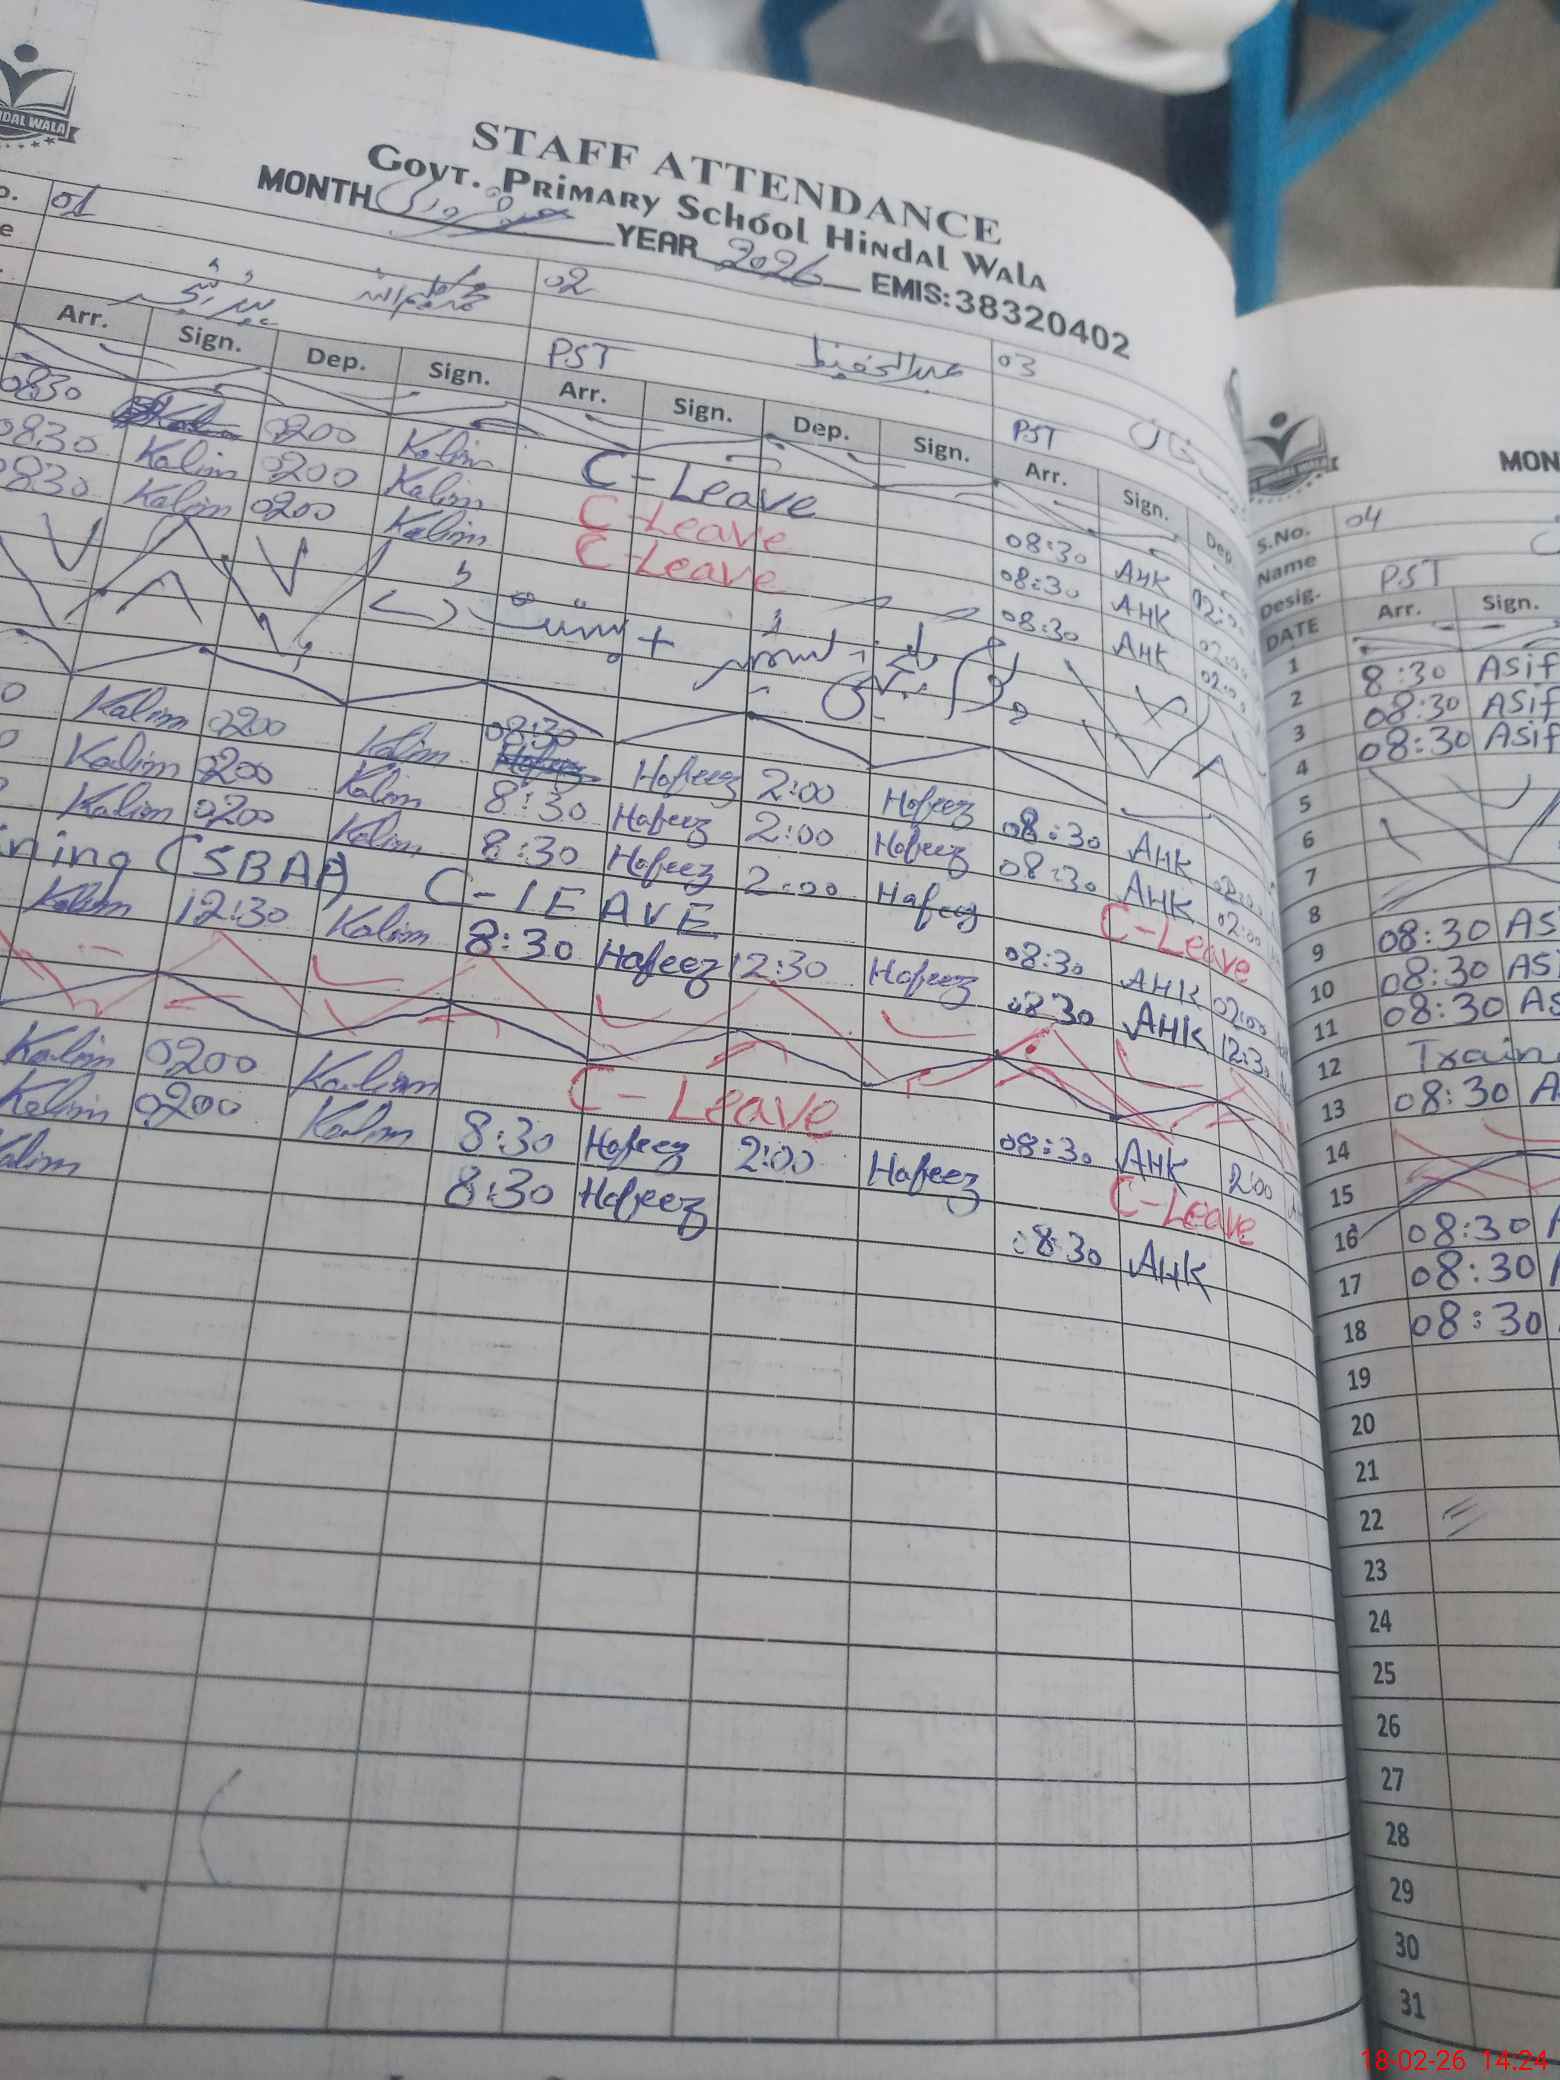 STAFF ATTENDANCE
GOVT. PRIMARY SCHOOL HINDAL WALA
MONTH فروری YEAR 2026 EMIS:38320402
01 02 03
PST عبدالحفیظ PST
Arr. Sign. Dep. Sign. Arr. Sign. Dep. Sign. Arr. Sign. Dep.
0830 Kalim 0200 Kalim C-Leave 08:30 AHK 02:00
0830 Kalim 0200 Kalim C-Leave 08:30 AHK 02:00
0830 Kalim 0200 Kalim C-Leave 08:30 AHK 02:0
Kalim 0200 Kalim 08:30 Hafeez 2:00 Hafeez 08:30 AHK
Kalim 0200 Kalim 8:30 Hafeez 2:00 Hafeez 08:30 AHK 02:00
Kalim 0200 Kalim 8:30 Hafeez 2:00 Hafeez C-Leave
ning (SBAP) C-LEAVE 08:30 AHK 02:00
Kalim 12:30 Kalim 8:30 Hafeez 12:30 Hafeez 08:30 AHK 12:30
Kalim 0200 Kalim C-Leave 08:30 AHK 2:00
Kalim 0200 Kalim 8:30 Hafeez 2:00 Hafeez C-Leave
Kalim 8:30 Hafeez 08:30 AHK
HINDAL WALA
MON
S.No. 04
Name
Desig. PST
DATE Arr. Sign.
1
2 8:30 Asif
3 08:30 Asif
4 08:30 Asif
5
6
7
8
9 08:30 AS
10 08:30 AS
11 08:30 AS
12 Train
13 08:30 A
14
15
16 08:30
17 08:30
18 08:30
19
20
21
22
23
24
25
26
27
28
29
30
31
18-02-26 14:24